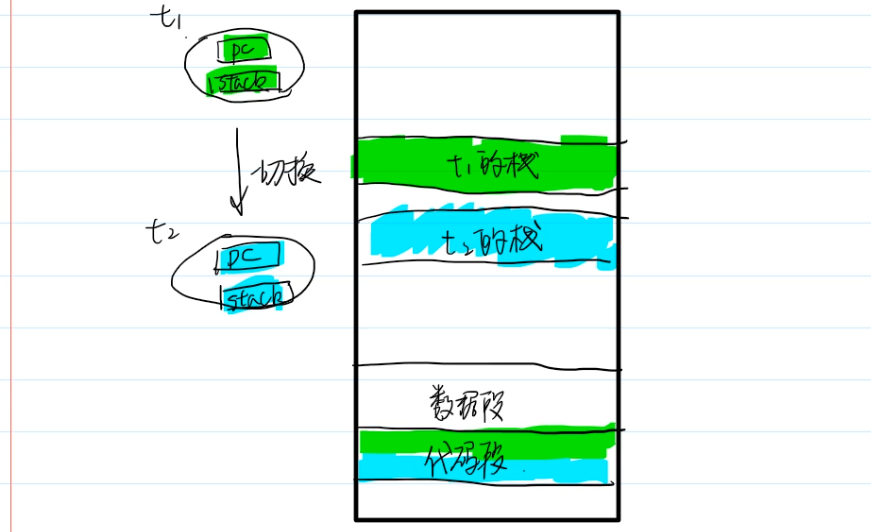 t1
pc
stack
切换
t2
pc
stack
t1的栈
t2的栈
数据段
代码段